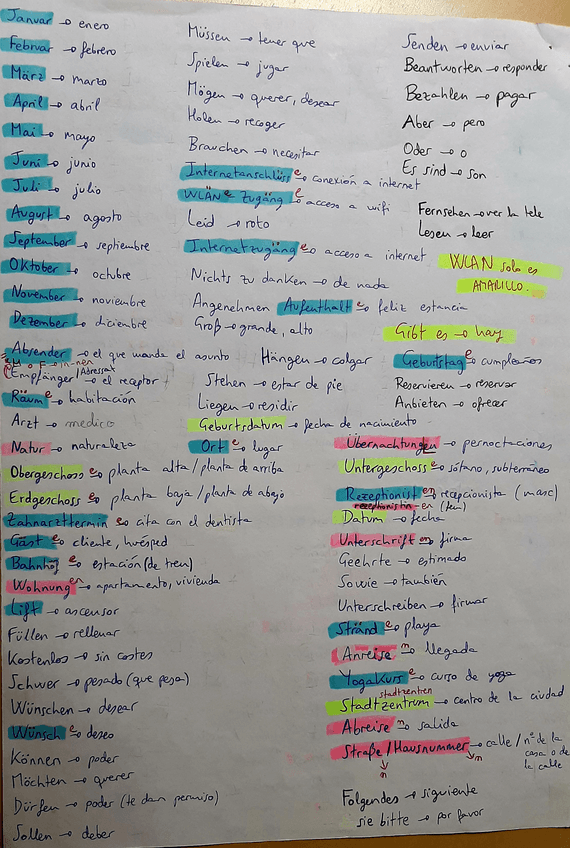 Januar → enero
Februar → febrero
März → marzo
April → abril
Mai → mayo
Juni → junio
Juli → julio
August → agosto
September → septiembre
Oktober → octubre
November → noviembre
Dezember → diciembre
Absender → el que manda el asunto
Empfänger /Adressat → el receptor
Räum e → habitación
Arzt → medico
Natur → naturaleza
Obergeschoss e → planta alta/planta de arriba
Erdgeschoss e → planta baja/planta de abajo
Zahnarzttermin e → cita con el dentista
Gäst e → cliente, huésped
Bahnhöf e → estación (de tren)
Wohnung en → apartamento, vivienda
Lift e → ascensor
Füllen → rellenar
Kostenlos → sin costes
Schwer → pesado (que pesa)
Wünschen → desear
Wünsch e → deseo
Können → poder
Möchten → querer
Dürfen → poder (te dan permiso)
Sollen → deber
Müssen → tener que
Spielen → jugar
Mögen → querer, desear
Holen → recoger
Brauchen → necesitar
Internetanschlüss e → conexión a internet
WLÄN e - Zugäng e → acceso a wifi
Leid → roto
Internetzugäng e → acceso a internet
Nichts zu danken → de nada
Angenehmen Aufenthalt e → feliz estancia
Groß → grande, alto
Hängen → colgar
Stehen → estar de pie
Liegen → residir
Geburtsdatum → fecha de nacimiento
Ort e → lugar
Senden → enviar
Beantworten → responder
Bezahlen → pagar
Aber → pero
Oder → o
Es sind → son
Fernsehen → ver la tele
Lesen → leer
WLAN solo es
AMARILLO.
Gibt es → hay
Geburtstag e → cumpleaños
Reservieren → reservar
Anbieten → ofrecer
Übernachtungen → pernoctaciones
Untergeschoss e → sótano, subterráneo
Rezeptionist en → recepcionista (masc)
receptionistin - en (fem)
Datum → fecha
Unterschrift en → firma
Geehrte → estimado
Sowie → también
Unterschreiben → firmar
Stränd e → playa
Anreise n → llegada
Yogakurs e → curso de yoga
stadtzentren
Stadtzentrum → centro de la ciudad
Abreise n → salida
Straße/Hausnummer → calle / nº de la casa o de la calle
n n
Folgendes → siguiente
sie bitte → por favor